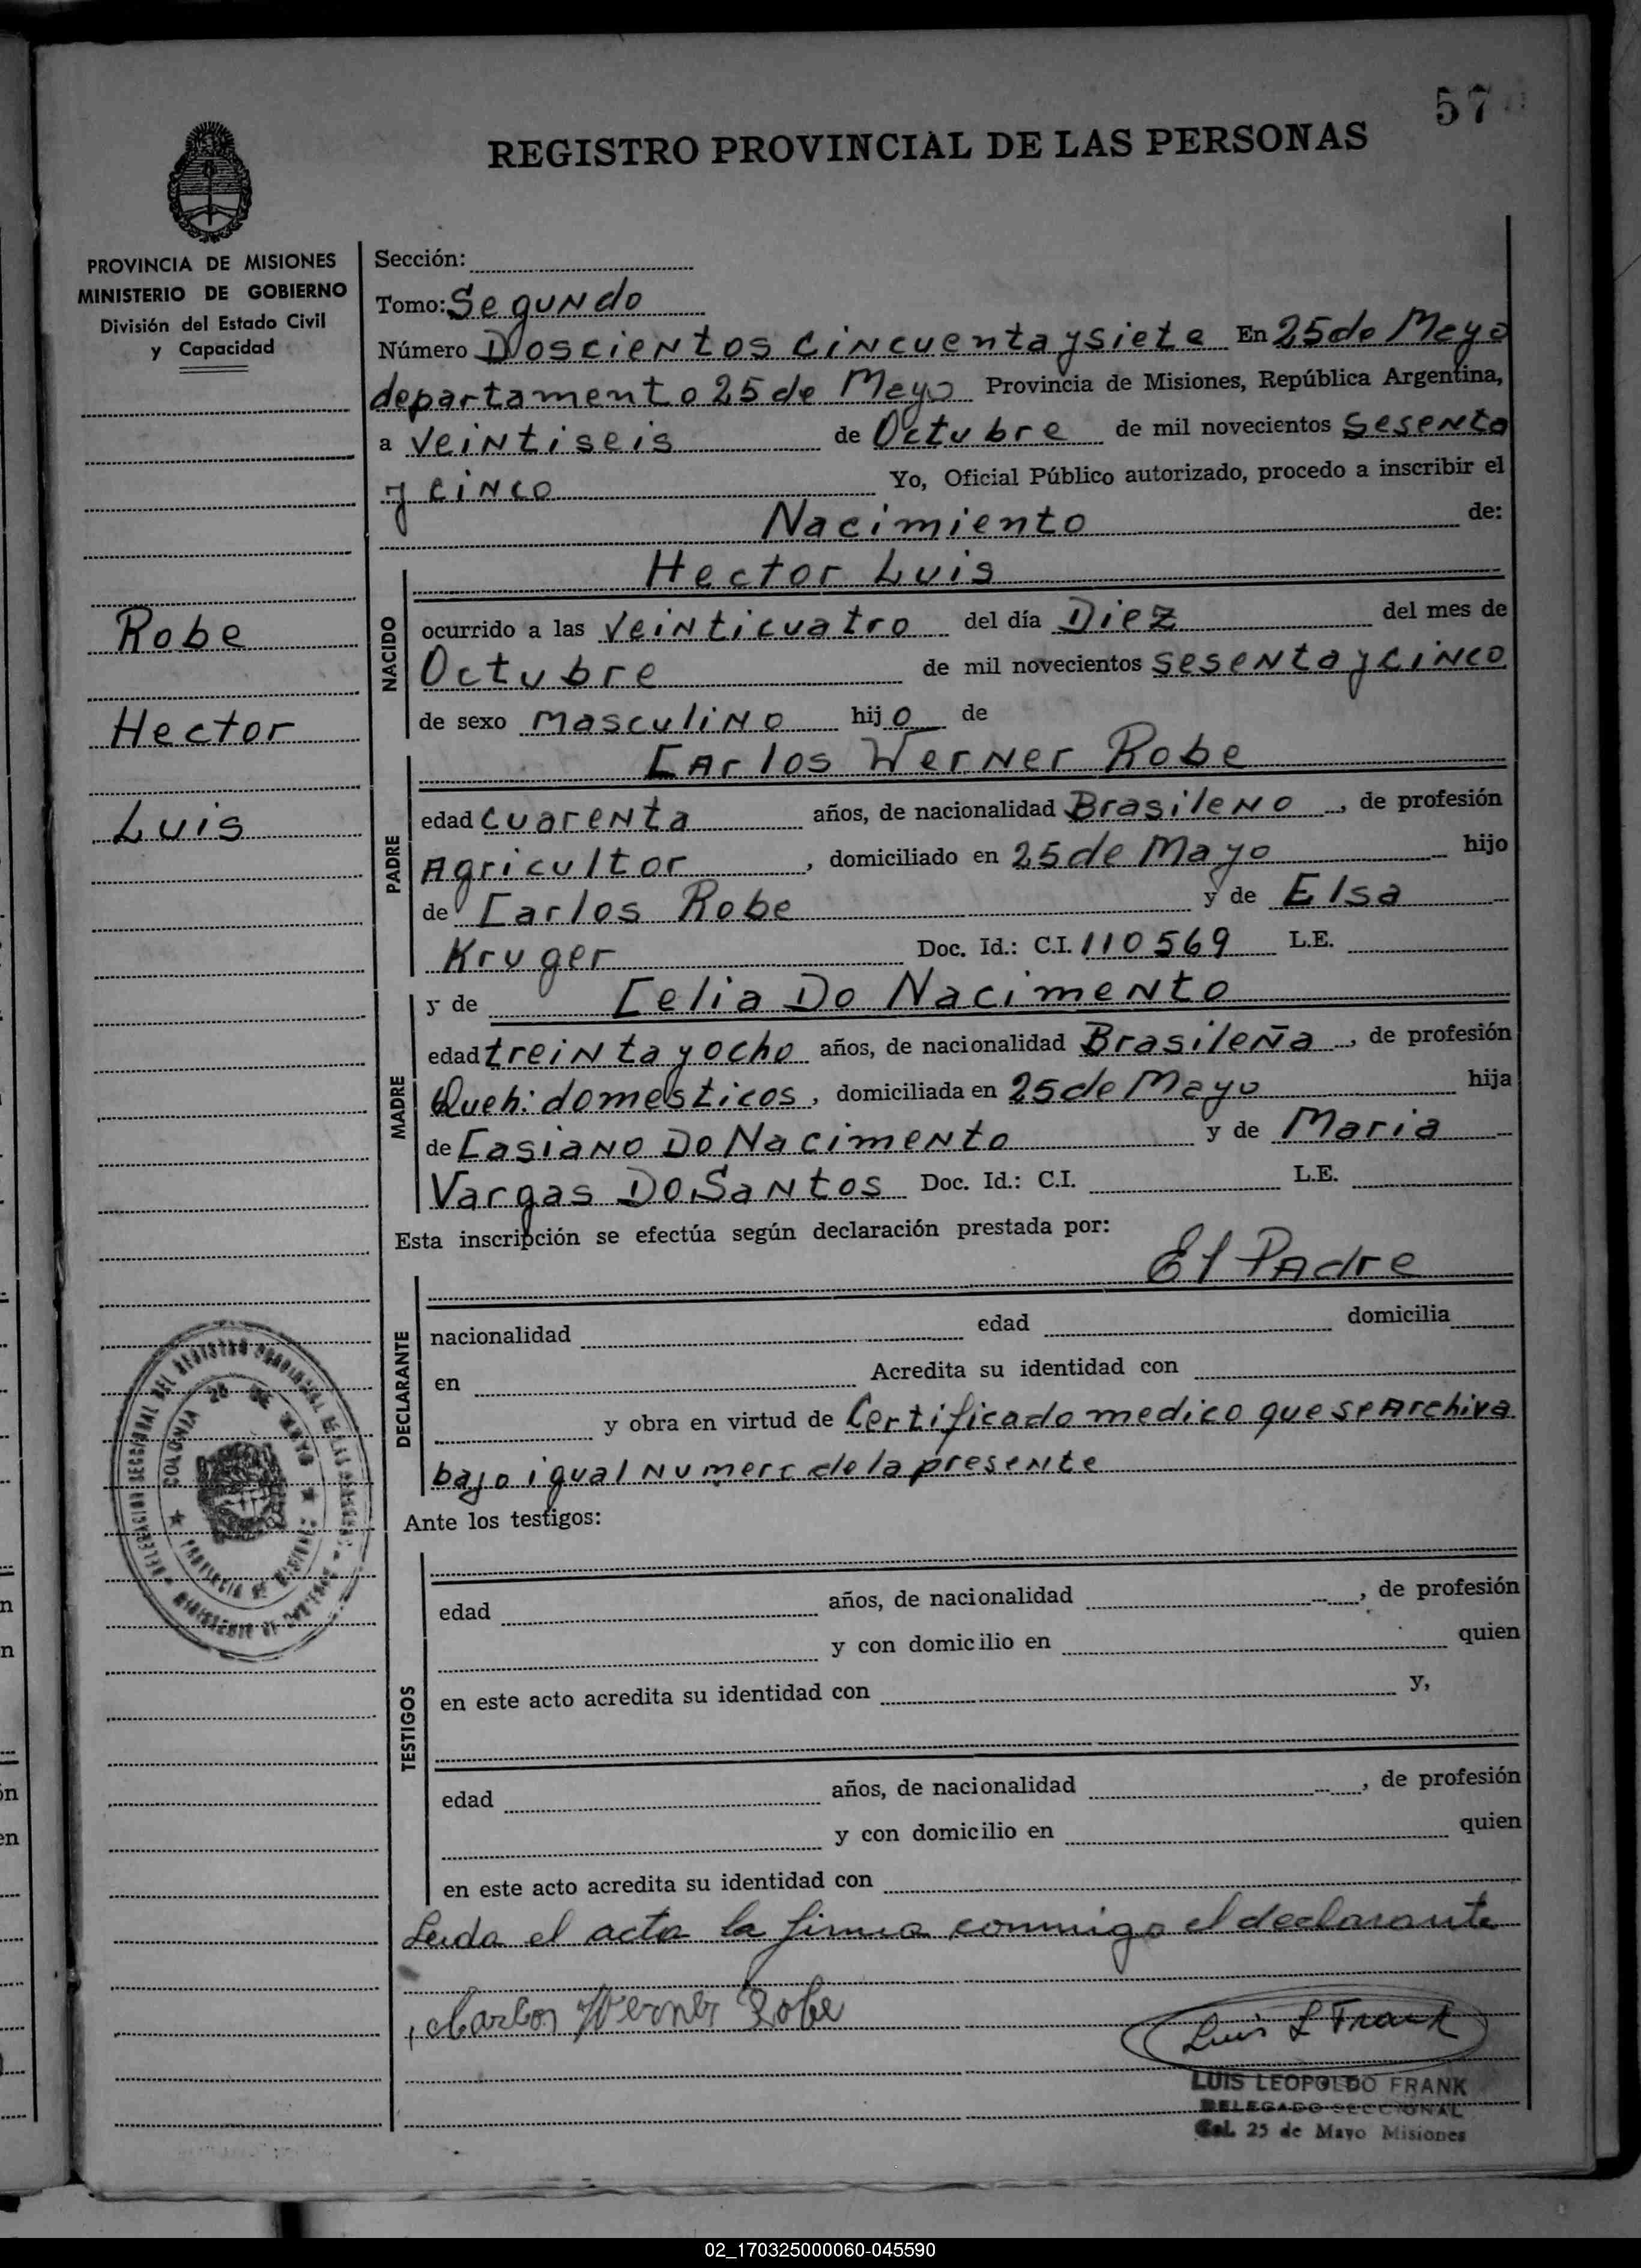 57
REGISTRO PROVINCIAL DE LAS PERSONAS
PROVINCIA DE MISIONES
MINISTERIO DE GOBIERNO
División del Estado Civil
y Capacidad
Robe
Hector
Luis
Sección:
Tomo: Segundo
Número Doscientos cincuenta y siete En 25 de Mayo
departamento 25 de Mayo Provincia de Misiones, República Argentina,
a veintiseis de Octubre de mil novecientos sesenta
y cinco Yo, Oficial Público autorizado, procedo a inscribir el
Nacimiento de:
Hector Luis
NACIDO
ocurrido a las veinticuatro del día Diez del mes de
Octubre de mil novecientos sesenta y cinco
de sexo masculino hijo de
Carlos Werner Robe
PADRE
edad cuarenta años, de nacionalidad Brasileno, de profesión
Agricultor, domiciliado en 25 de Mayo hijo
de Carlos Robe y de Elsa
Kruger Doc. Id.: C.I. 110569 L.E.
y de Celia Do Nacimento
MADRE
edad treinta y ocho años, de nacionalidad Brasileña, de profesión
Queh: domesticos, domiciliada en 25 de Mayo hija
de Casiano Do Nacimento y de Maria
Vargas Do Santos Doc. Id.: C.I. L.E.
Esta inscripción se efectúa según declaración prestada por:
El Padre
DECLARANTE
nacionalidad edad domicilia
en Acredita su identidad con
y obra en virtud de Certificado medico que se Archiva
bajo igual numero de la presente
Ante los testigos:
TESTIGOS
edad años, de nacionalidad , de profesión
y con domicilio en quien
en este acto acredita su identidad con y,
edad años, de nacionalidad , de profesión
y con domicilio en quien
en este acto acredita su identidad con
Leida el acta la firma conmigo el declarante
Carlos Werner Robe
Luis L Frank
LUIS LEOPOLDO FRANK
DELEGADO SECCIONAL
Col. 25 de Mayo Misiones
COLONIA 25 DE MAYO
PROVINCIA DE MISIONES
02_170325000060-045590